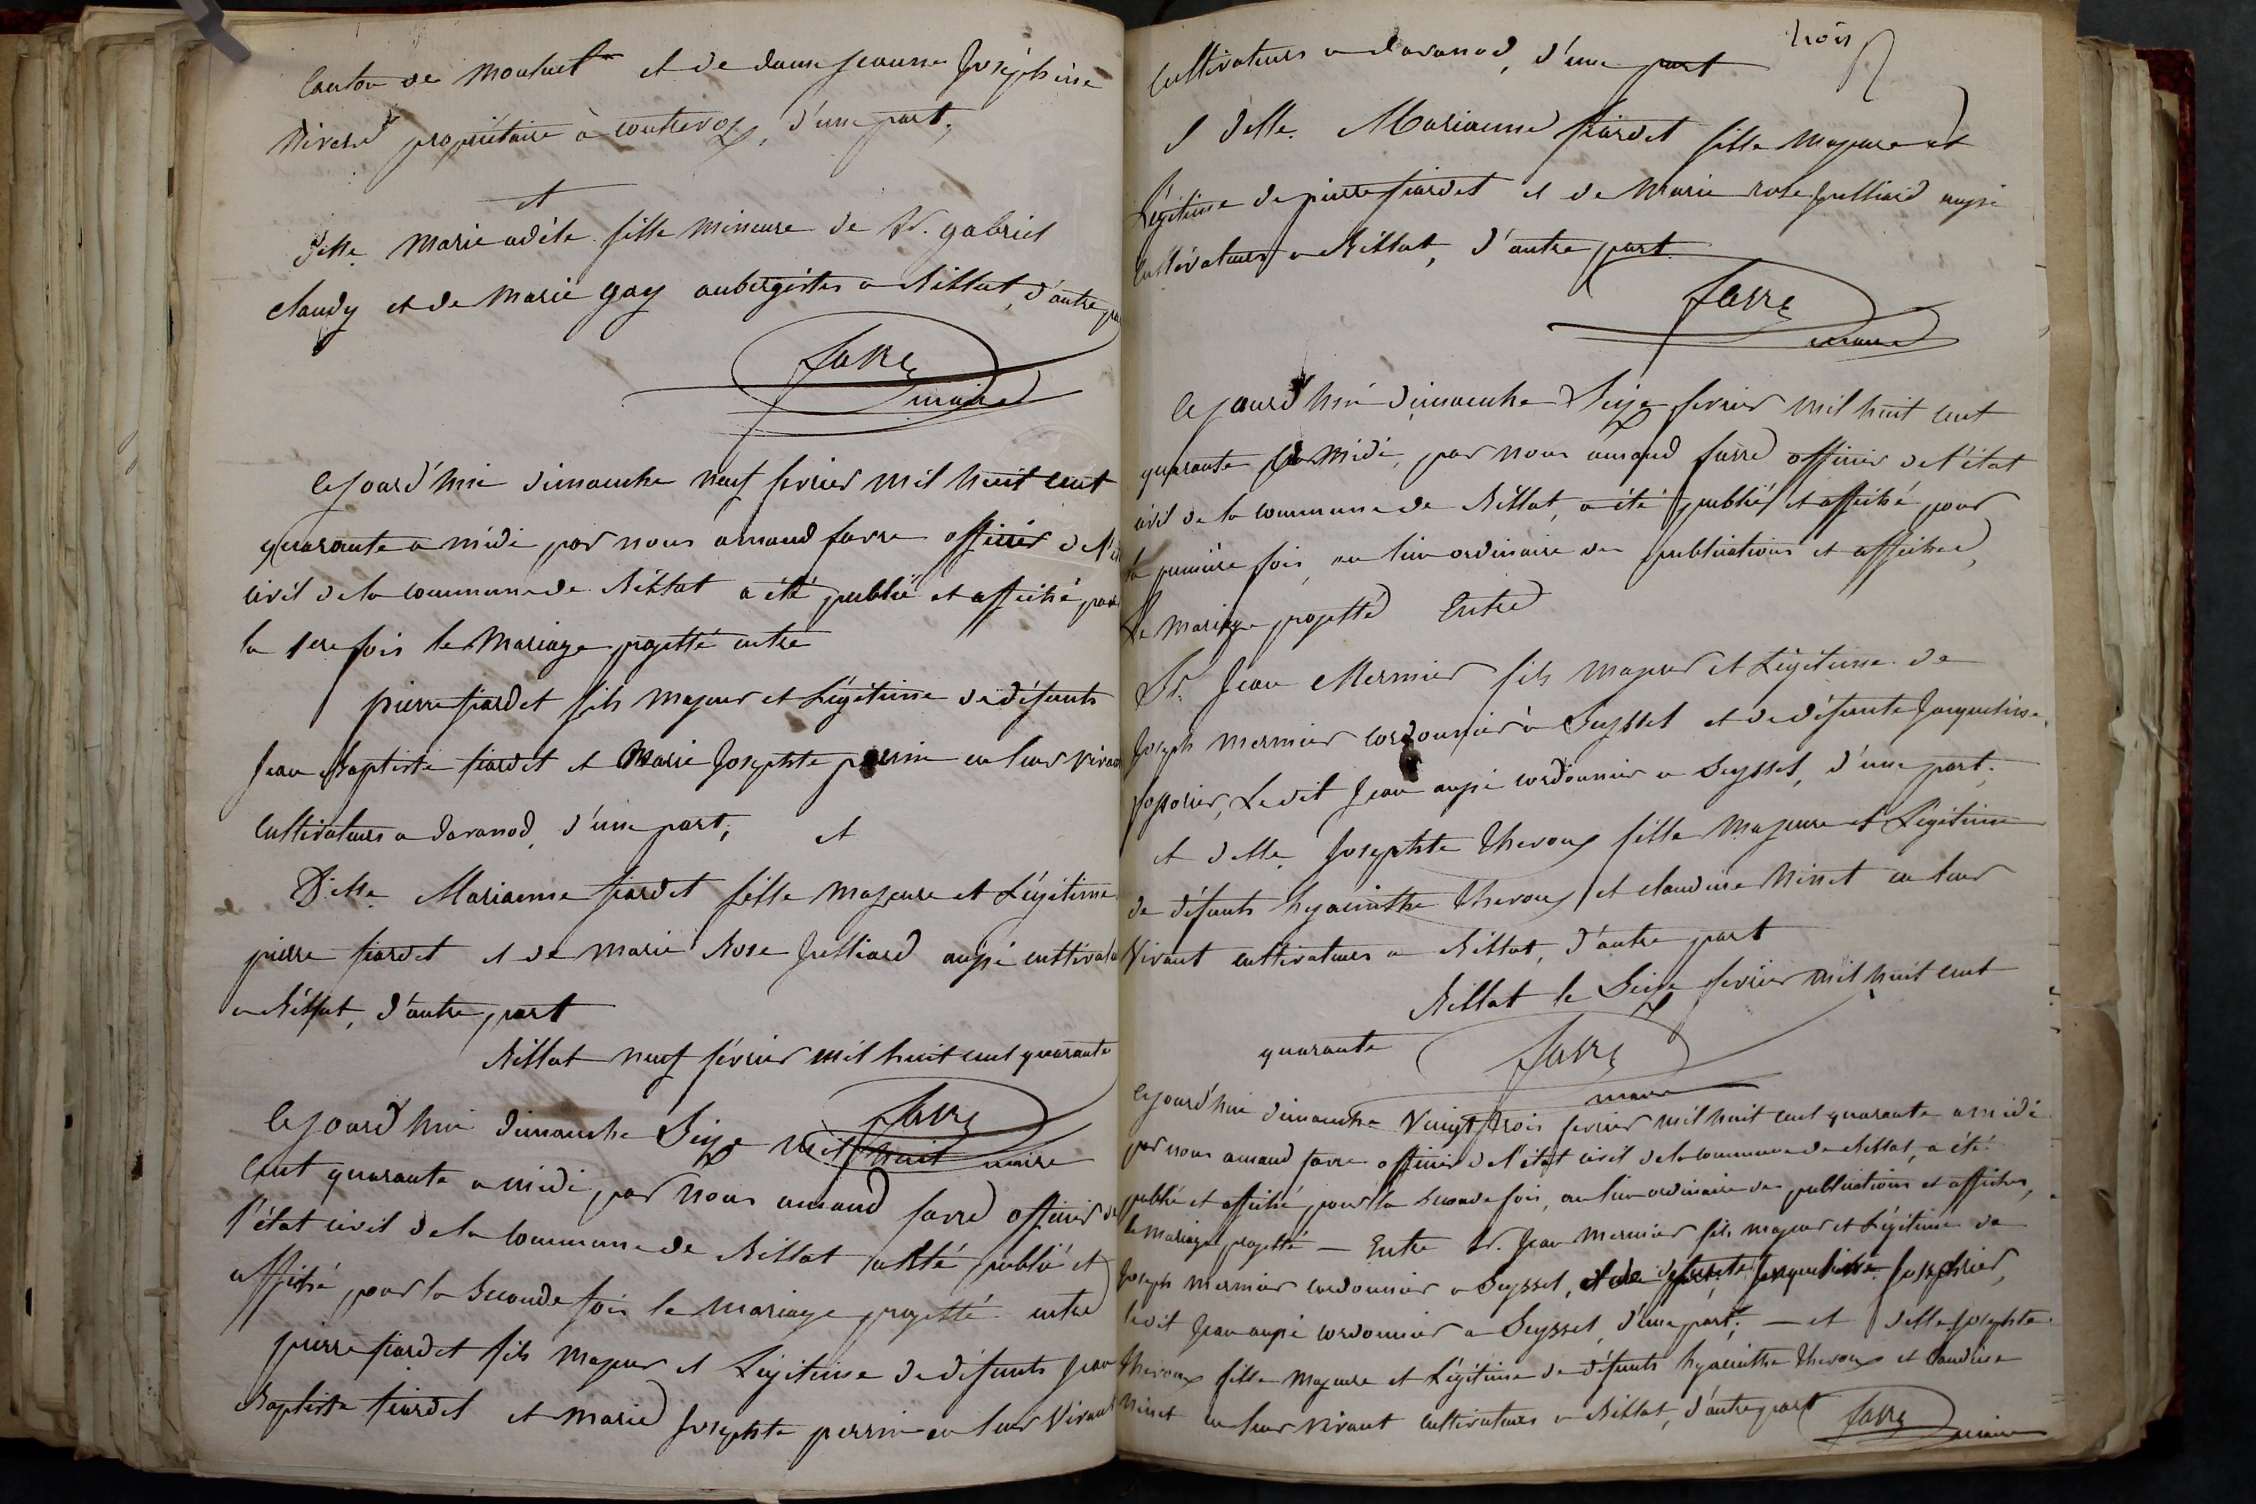 Canton de et de dame jeanne Joséphine
propriétaire à d'une part,
et
Delle. Marie adèle fille mineure de Sr. gabriel
claudy et de Marie gay aubergistes a Billiat, d'autre part
favre
maire
Cejourd'hui dimanche neuf fevrier mil huit cent
quarante a midi par nous amand favre officier de l'état
civil de la commune de Billiat a été publié et affiché pour
la 1ere fois le Mariage projetté entre
pierre fiardet fils majeur et Légitime de défunts
Jean Baptiste fiardet et Marie Josephte perrin en leur vivant
Cultivateurs a d'une part, et
Delle. Marianne fiardet fille majeure et Légitime
pierre fiardet et de Marie Rose Julliard aussi cultivateurs
a Billiat, d'autre part
Billiat neuf février mil huit cent quarante
favre
maire
Cejourd'hui dimanche Seize mil huit
Cent quarante a midi, par nous amand favre officier de
l'état civil de la Commune de Billiat a été publié et
affiché pour la Seconde fois le Mariage projetté entre
pierre fiardet fils majeur et Légitime de défunts Jean
Baptiste fiardet et Marie Josephte perrin en leur Vivant
trois
Cultivateurs a d'une part
& Delle. Marianne fiardet fille majeure et
Légitime de pierre fiardet et de Marie rose Julliard aussi
Cultivateurs a Billiat, d'autre part.
favre
maire
Cejourd'hui dimanche Seize fevrier mil huit cent
quarante a midi, par nous amand favre officier de l'état
civil de la commune de Billiat, a été publié et affiché pour
la première fois, au lieu ordinaire des publications et affiches,
Le Mariage projetté Entre
Sr. Jean Mermier fils majeur et Légitime de
Joseph Mermier cordonnier à Seyssel et de défunte Jacqueline
Ledit Jean aussi cordonnier a Seyssel, d'une part;
et delle. Josephte Thevoux fille majeure et Légitime
de défunts hyacinthe Thevoux et claudine Ninet en leur
Vivant cultivateurs a Billiat, d'autre part
Billiat le Seize fevrier mil huit cent
quarante
favre
maire
Cejourd'hui dimanche Vingt trois fevrier mil huit cent quarante a midi
par nous amand favre officier de l'état civil de la commune de Billiat, a été
publié et affiché pour la Seconde fois, au lieu ordinaire des publications et affiches,
le Mariage projetté — Entre Sr. Jean Mermier fils majeur et Légitime de
Joseph Mermier cordonnier a Seyssel, et de défunte Jacqueline
ledit Jean aussi cordonnier a Seyssel, d'une part; — et delle Josephte
Thevoux fille majeure et Légitime de défunts hyacinthe Thevoux et claudine
Ninet en leur vivant cultivateurs a Billiat, d'autre part
favre
maire